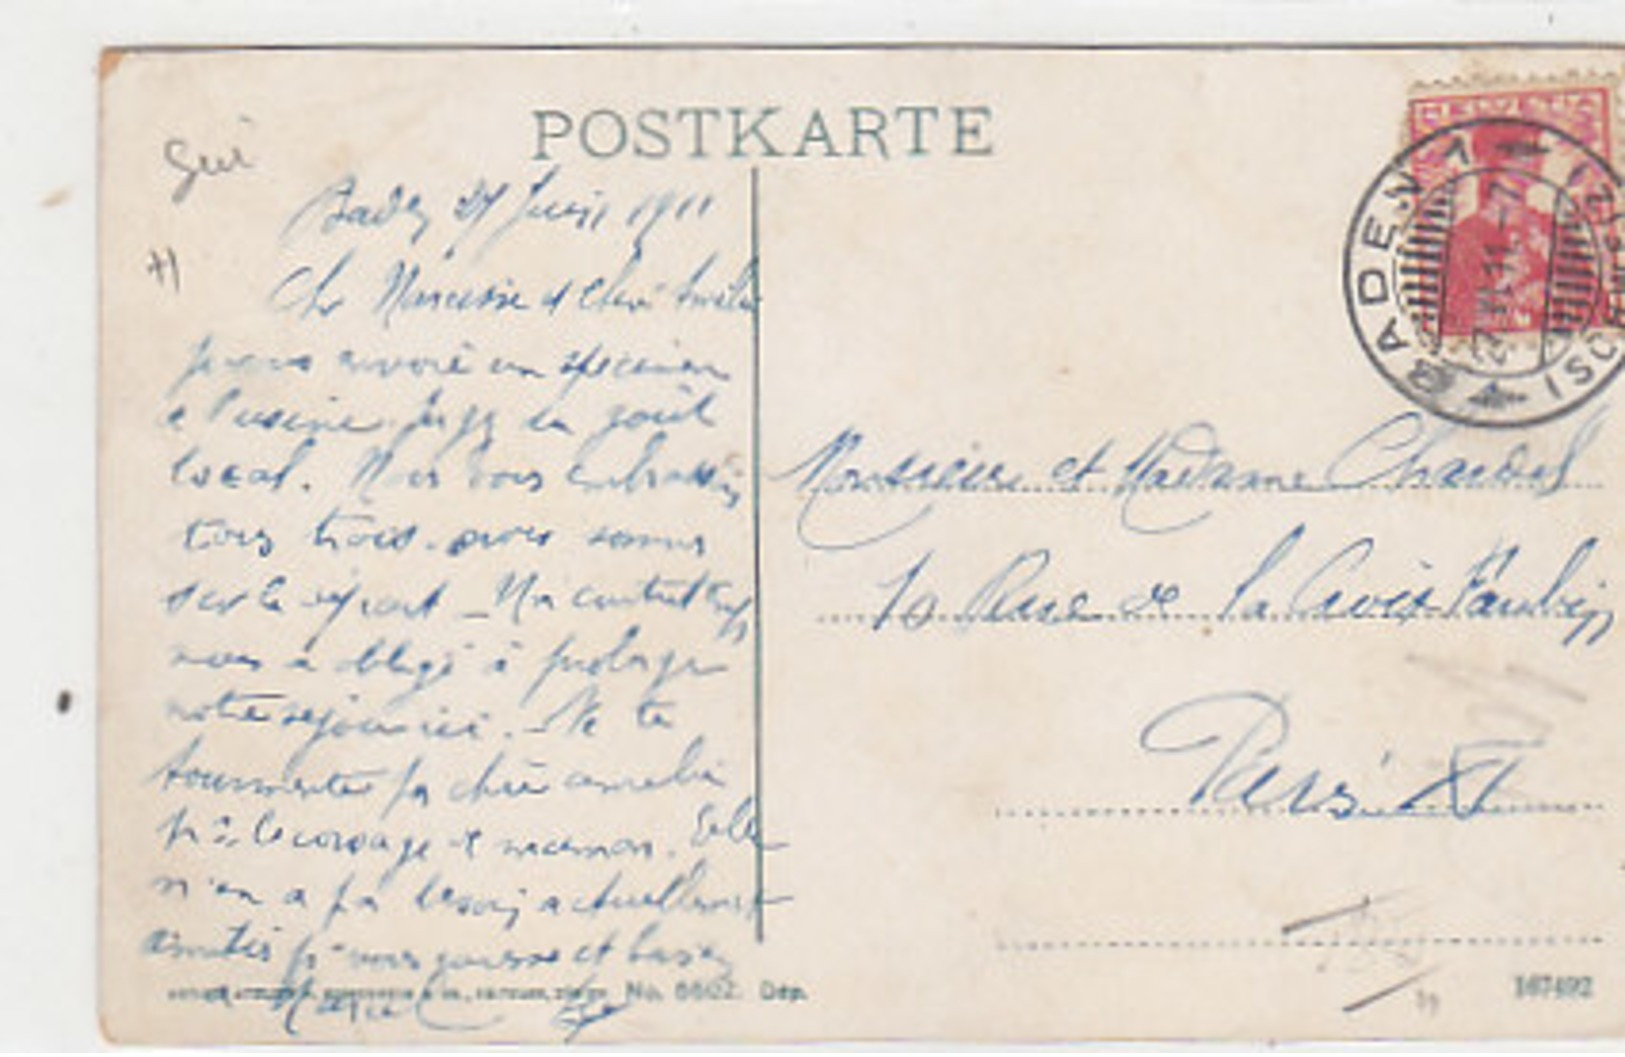 POSTKARTE
Sui
Baden 27 Juin 1911
Cher Narcisse et chère Amélie
Je vous envoie un specimen
à l'usine. Jugez du goût
local. Nous vous embrassons
tous trois. nous sommes
sur le départ _ Un contretemps
nous a obligé à prolonger
notre sejour ici. _ Ne te
tourmente pas chère amelie
pr le corsage de maman. Elle
n'en a pas besoin actuellement
amitiés pr vous et
Marcel
No. 6602. Dép.
BADEN
(SCHWEIZ)
Monsieur et Madame Chardel
10 Rue de la Croix Faubin
Paris XI
167492